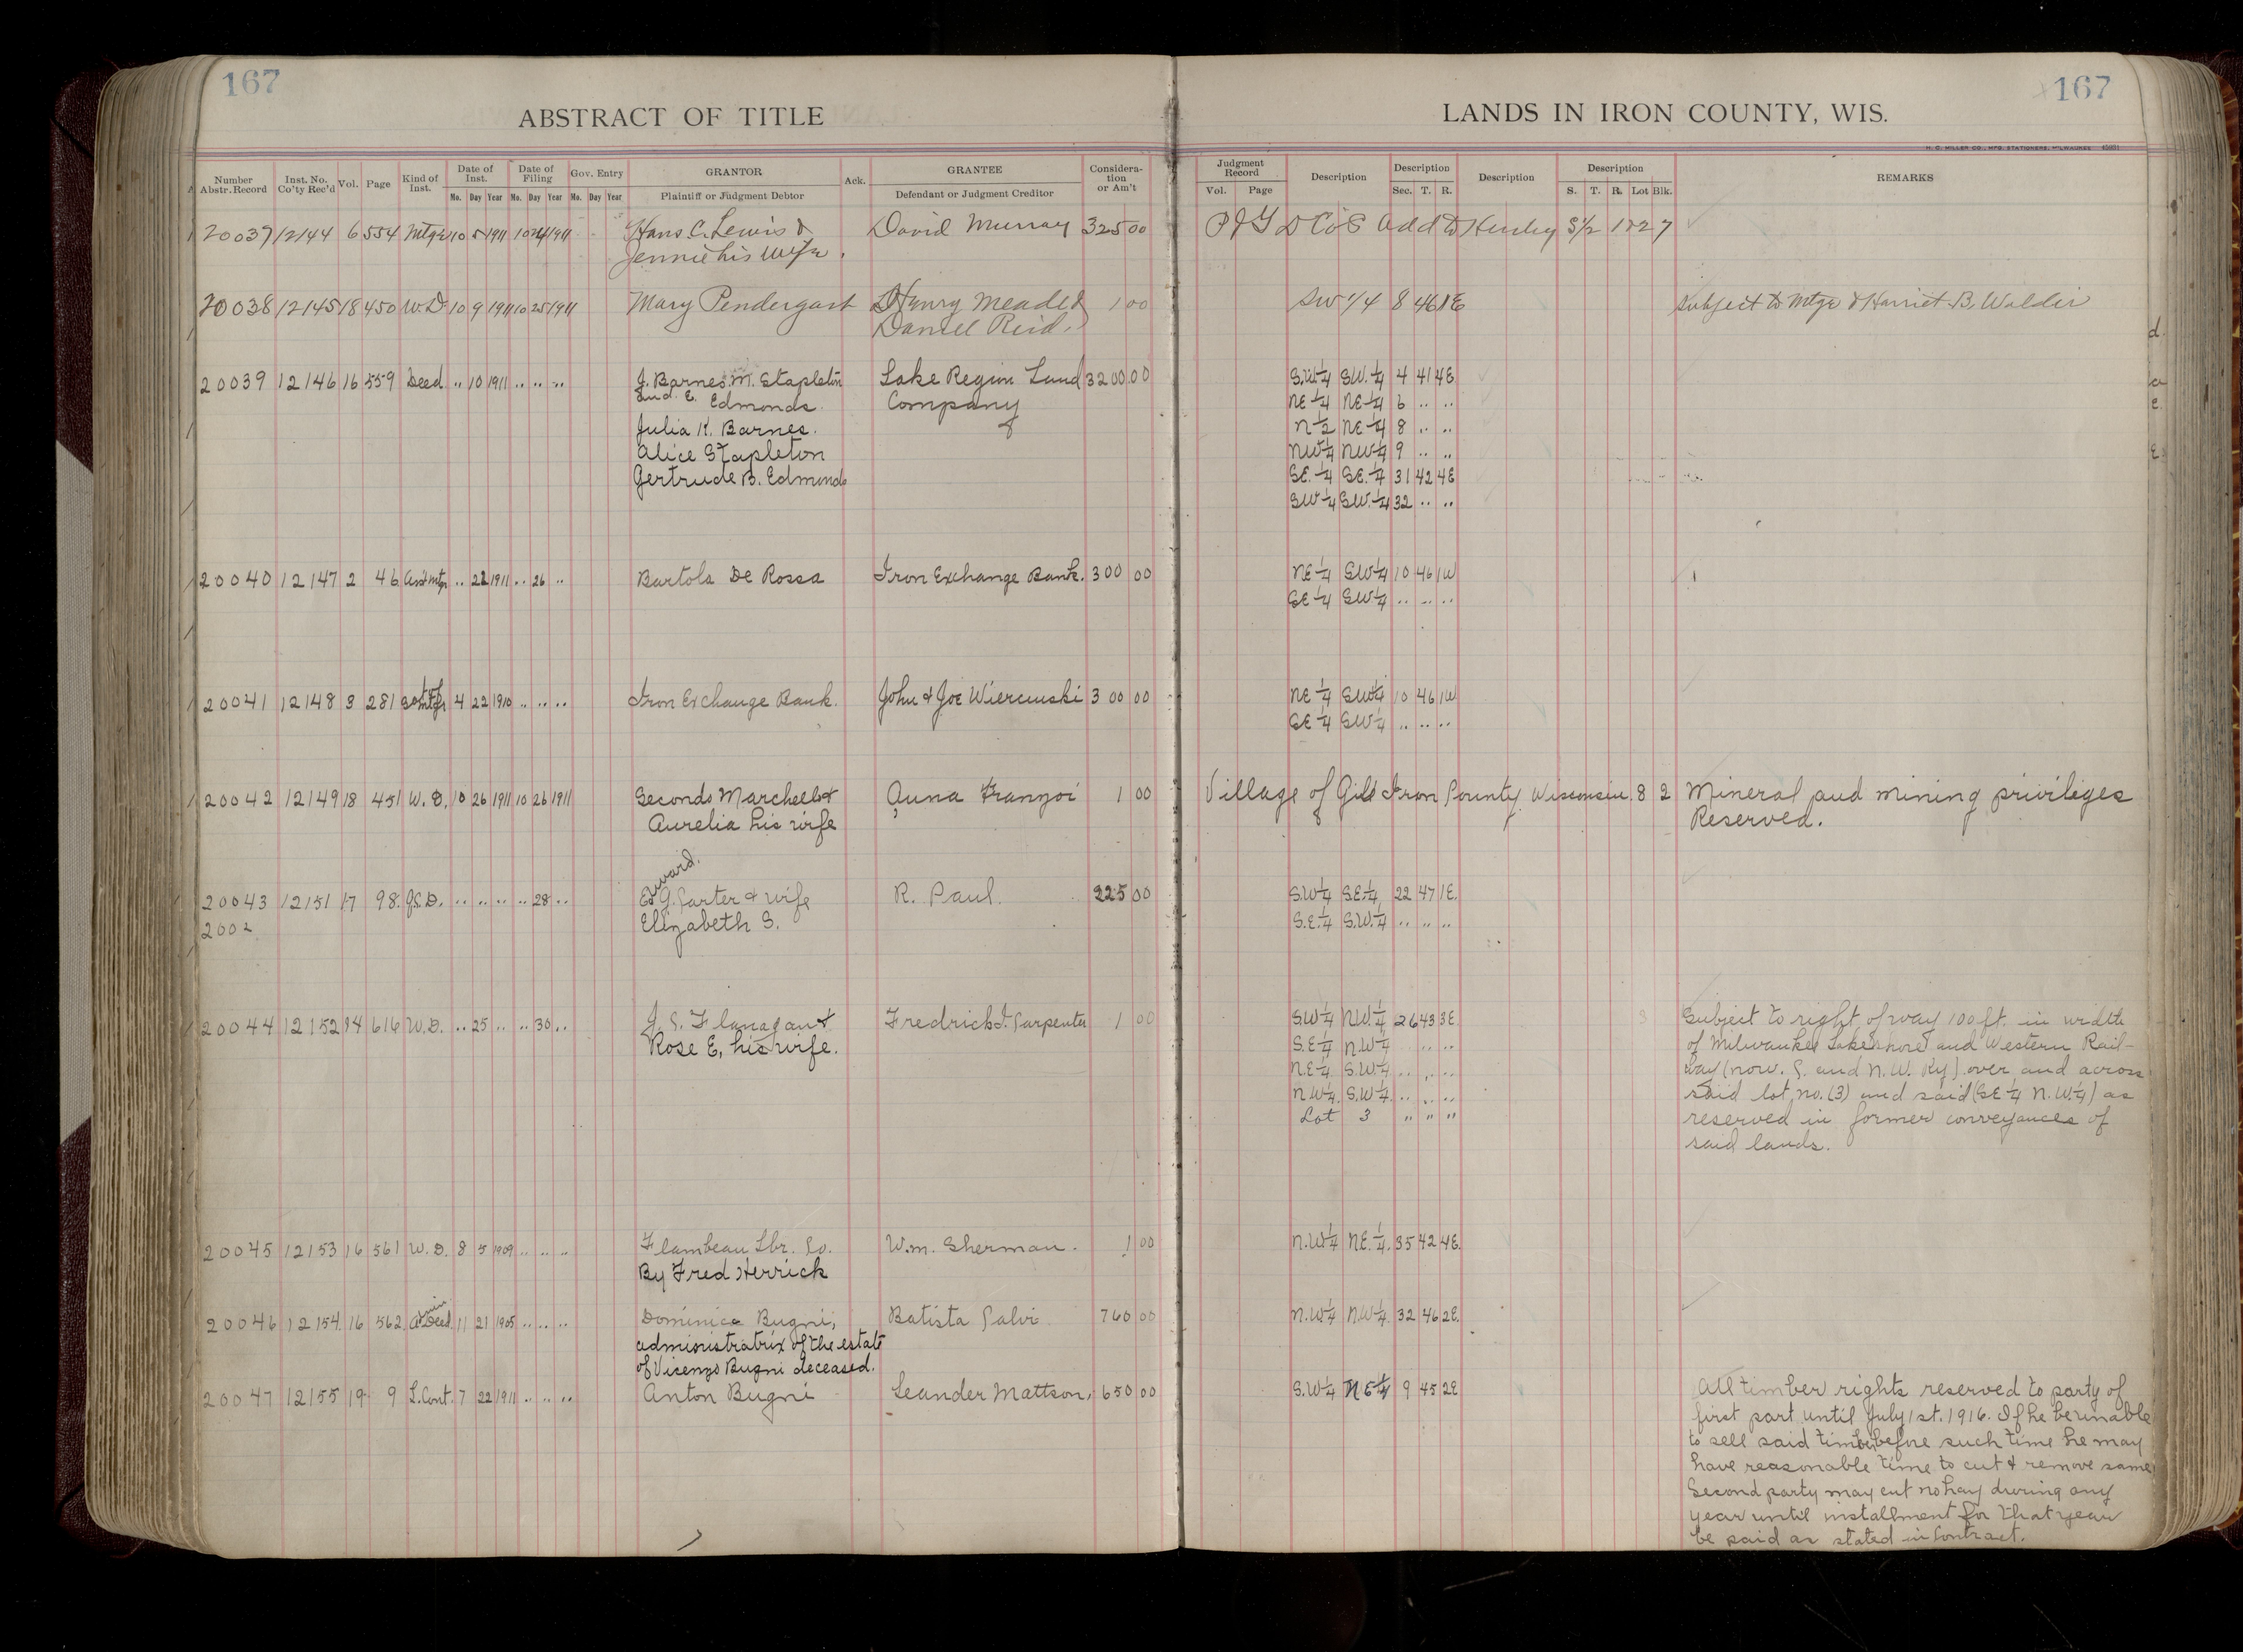 167
167
ABSTRACT OF TITLE
LANDS IN IRON COUNTY, WIS.
H. C. MILLER CO., MFG. STATIONERS, MILWAUKEE
Number Abstr. Record Inst. No. Co'ty Rec'd Vol. Page Kind of Inst. Date of Inst. Date of Filing Gov. Entry GRANTOR Ack. GRANTEE Consideration or Am't Judgment Record Description Description Description Description REMARKS
Mo. Day Year Mo. Day Year Mo. Day Year Plaintiff or Judgment Debtor Defendant or Judgment Creditor Vol. Page Sec. T. R. S. T. R. Lot Blk.
20037 12144 6 554 Mtge 10 5 1911 10 24 1911 Hans C. Lewis & David Murray 325 00 Add to Hurley S 1/2 1 & 2 7
Jennie his wife.
20038 12145 18 450 W.D. 10 9 1911 10 25 1911 Mary Pendergast Henry Meade & 1 00 SW 1/4 8 46 1E Subject to Mtge Harriet B.
Daniel Reid.
20039 12146 16 559 Deed .. 10 1911 .. .. .. J. Barnes. M. Stapleton Lake Region Land 3200 00 S.W 1/4 SW. 1/4 4 41 4E
and E. Edmonds. Company NE 1/4 NE 1/4 6 .. ..
Julia K. Barnes. N 1/2 NE 1/4 8 .. ..
Alice Stapleton NW 1/4 NW 1/4 9 .. ..
Gertrude B. Edmonds SE. 1/4 SE. 1/4 31 42 4E
SW 1/4 SW. 1/4 32 .. ..
20040 12147 2 46 Mtge .. 22 1911 .. 26 .. Bartola De Rossa Iron Exchange Bank. 300 00 NE 1/4 SW 1/4 10 46 1W
SE 1/4 SW 1/4 .. .. ..
20041 12148 3 281 4 22 1910 .. .. .. Iron Exchange Bank. John & Joe 300 00 NE 1/4 SW 1/4 10 46 1W
SE 1/4 SW 1/4 .. .. ..
20042 12149 18 451 W. D. 10 26 1911 10 26 1911 Secondo Marchello & Anna Franzoi 1 00 Village of Gile Iron County Wisconsin. 8 2 Mineral and mining privileges
Aurelia his wife Reserved.
20043 12151 17 98. .. .. .. .. 28 .. Edward. G. Carter & wife R. Paul. 225 00 S.W 1/4 S.E. 1/4 22 47 1E.
2002 Elizabeth S. S.E. 1/4 S.W. 1/4 .. .. ..
20044 12152 14 616 W.D. .. 25 .. .. 30 .. J. S. Flanagan & Fredrick J. Carpenter 1 00 S.W 1/4 N.W. 1/4 26 43 3E Subject to right of way 100 ft. in width
Rose E, his wife. S.E 1/4 N.W 1/4 .. .. of Milwaukee Lakeshore and Western Rail-
N.E 1/4 S.W 1/4 .. .. .. way (now. C. and N.W. Ry) over and across
N.W 1/4 S.W 1/4 .. .. .. said lot no. (3) and said (SE 1/4 N.W. 1/4) as
Lot 3 " " " reserved in former conveyances of
said lands.
20045 12153 16 561 W. D. 8 5 1909 .. .. .. Flambeau Lbr. Co. W.m. Sherman. 1 00 N.W 1/4 NE. 1/4. 35 42 4E.
By Fred Herrick
20046 12154 16 562 Admin Deed 11 21 1905 .. .. .. Dominica Bugni, Batista Calvi 760 00 N.W 1/4 N.W 1/4 32 46 2E.
administratrix of the estate
of Vicenzo Bugni deceased.
20047 12155 19 9 L. Cont. 7 22 1911 .. .. .. Anton Bugni Leander Mattson, 650 00 S.W 1/4 NE 1/4 9 45 2E All timber rights reserved to party of
first part until July 1st. 1916. If he be unable
to sell said timber before such time he may
have reasonable time to cut & remove same
Second party may cut no hay during any
year until installment for that year
be paid as stated in contract.